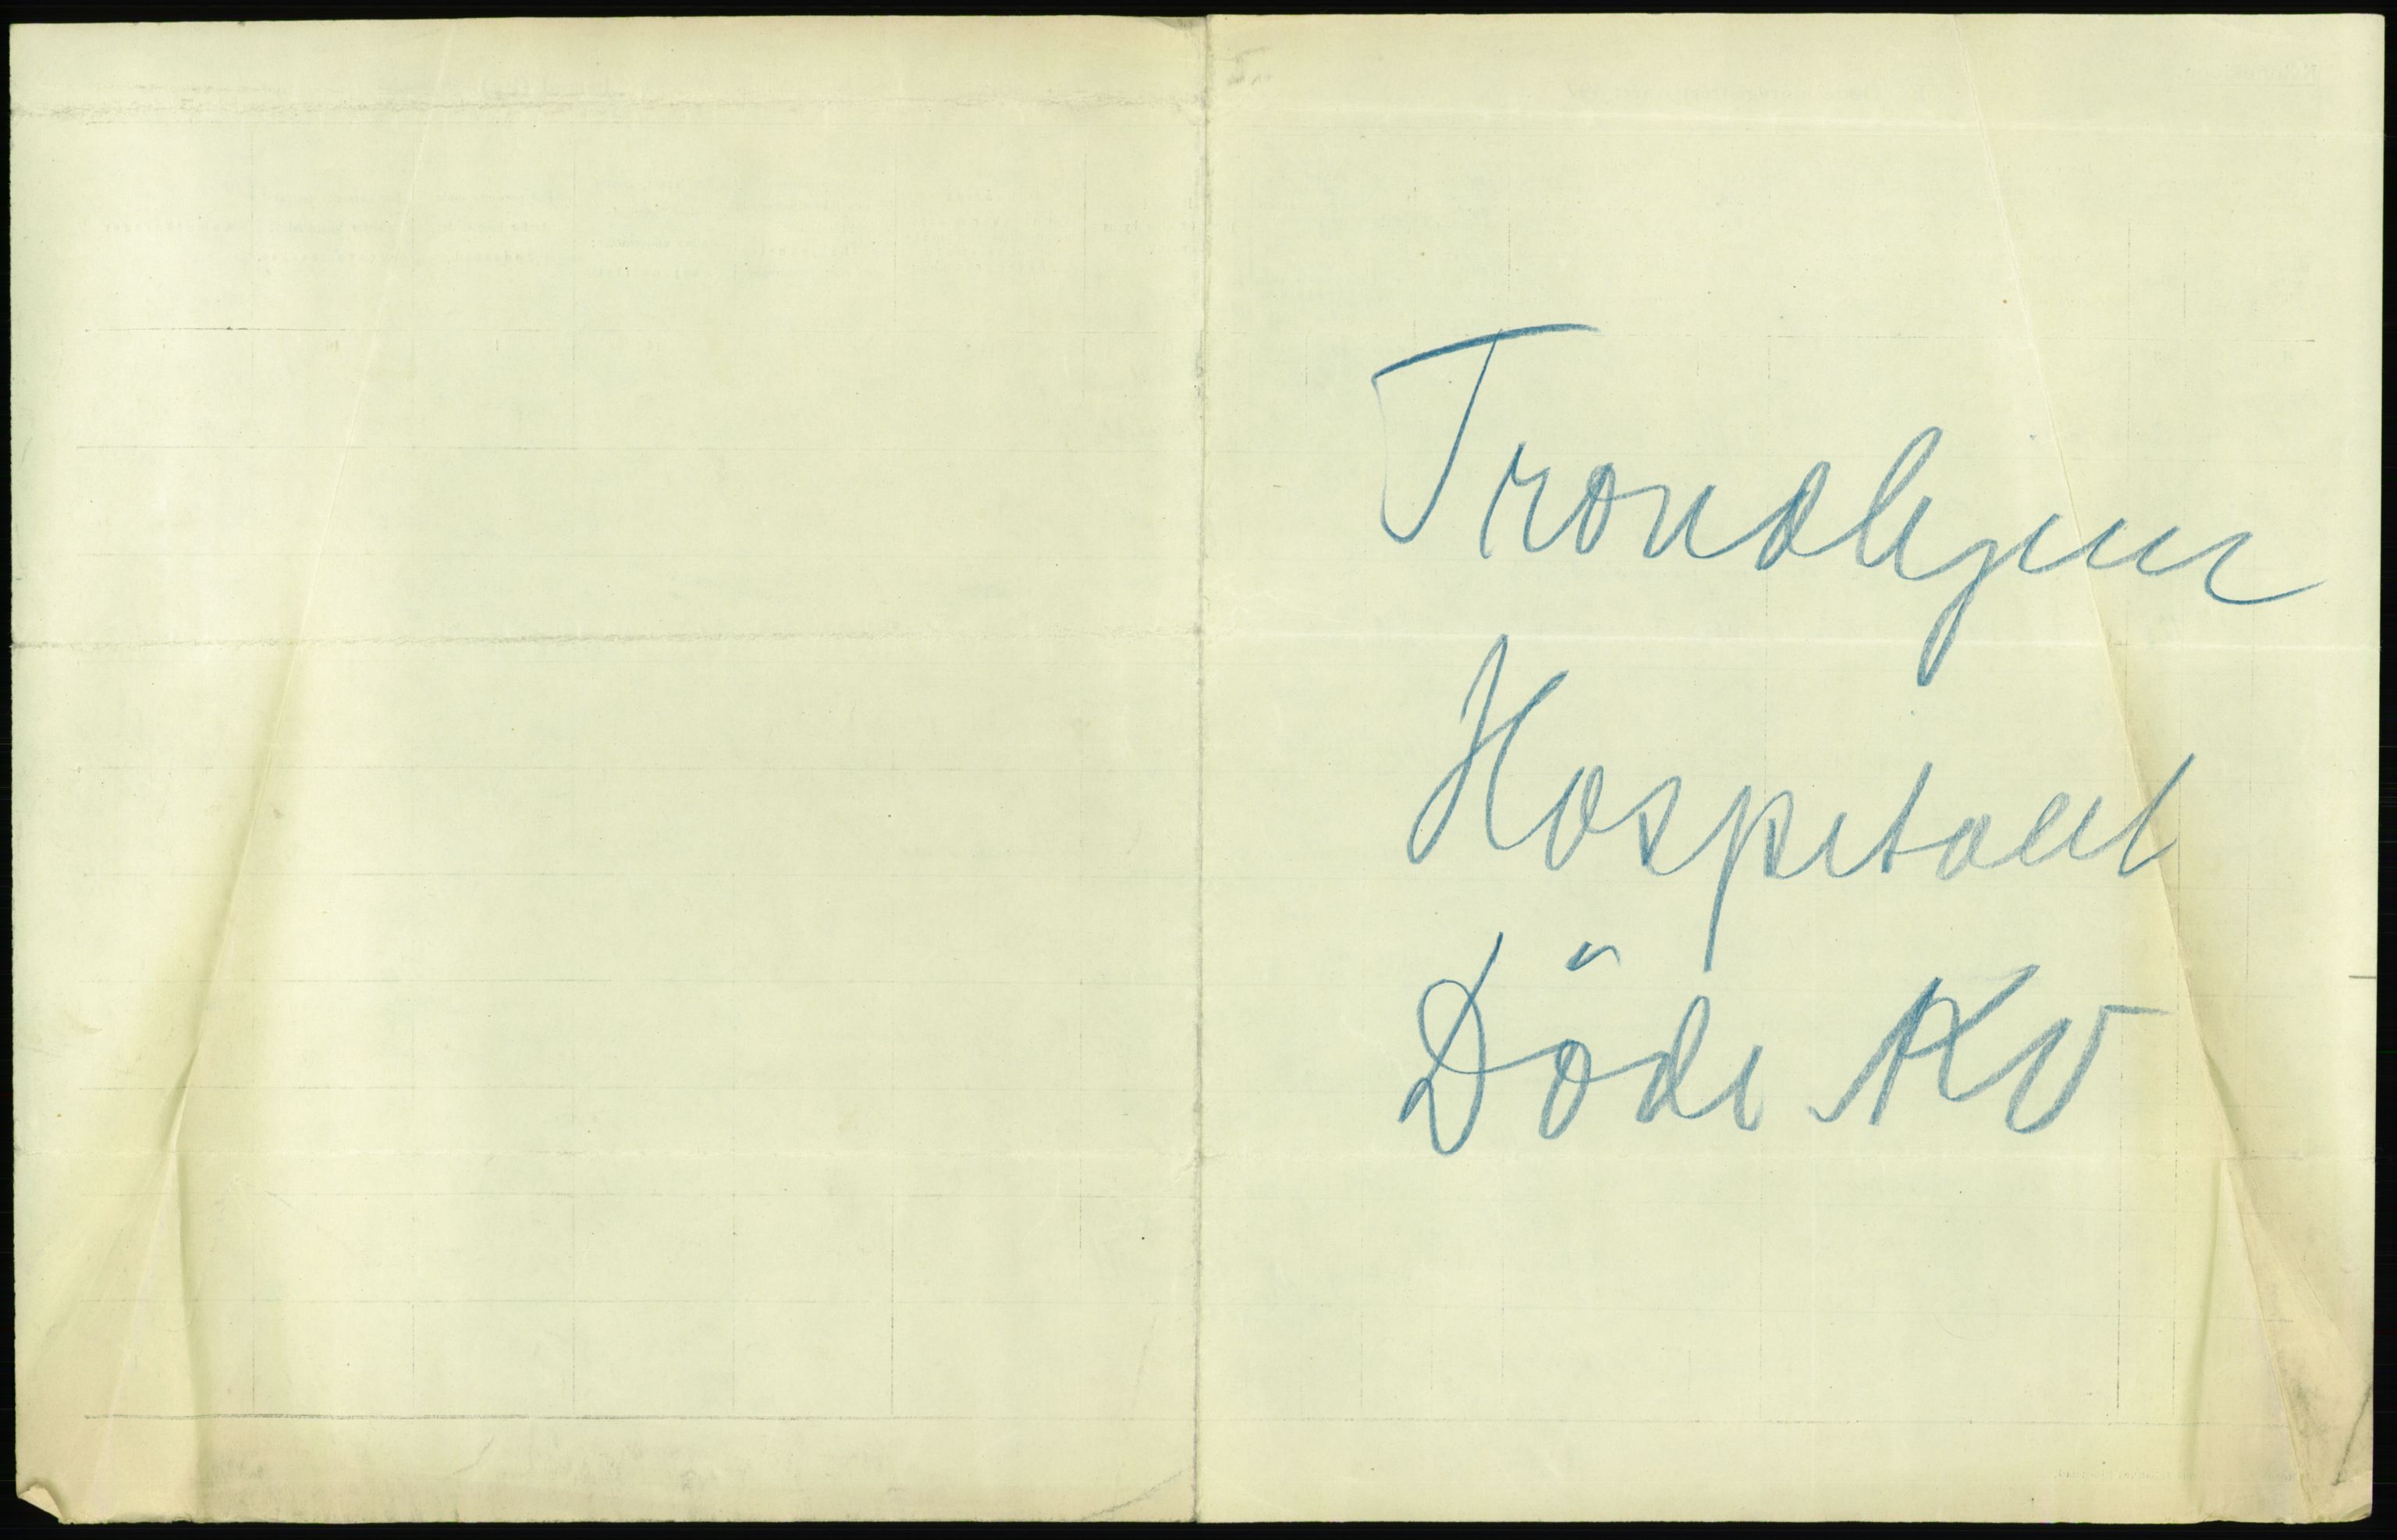 Trondhjem
Hospitalet
Döde KV